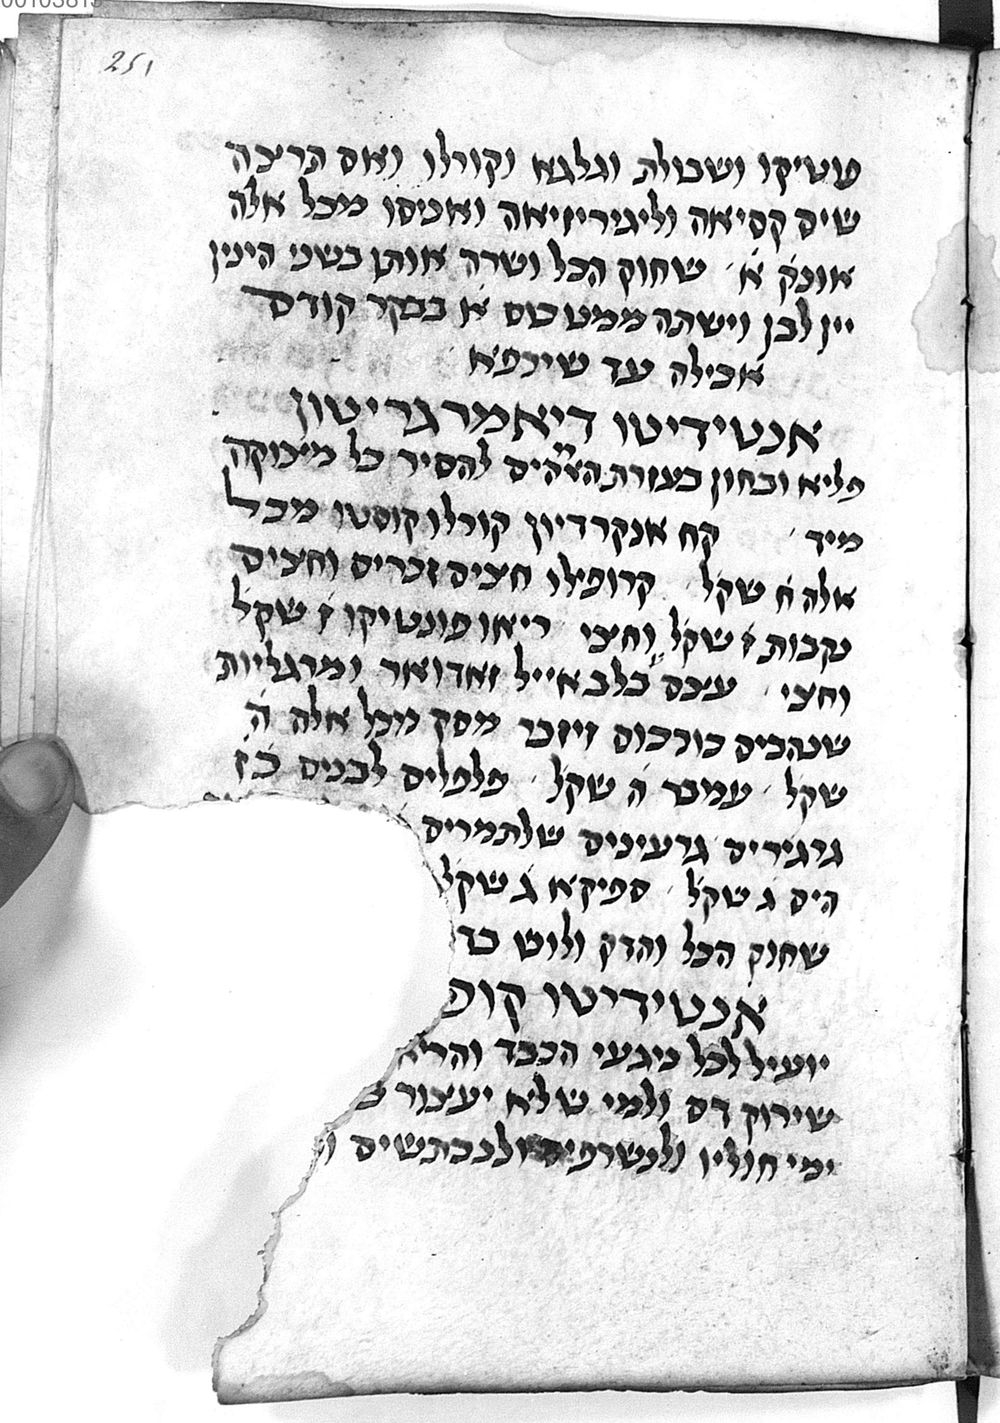 00103815
251
עטיקו ושבולת וגלגא וקורלו ואם תרצה
שים קסיאה וליגיריזיאה ואניסו מכל אלה
אונק׳ א׳ שחוק הכל ושרה אותן בשני הינין
יין לבן וישתה ממט כוס א׳ בבקר קודם
אכילה עד שירפא
אנטידיטו דיאמרגריטון
פליא ובחון בעזרת הצ״ה״ים להסיר כל מיכוקה
מיד קח אנקרדיון קורלו קוסטו מכל
אלה ח׳ שקל קרופילו חצים זכרים וחצים
נקבות ז׳ שקל וחצי ריאו פונטיקו ז׳ שקל
וחצי עצם כלב אייל זאדואר ומרגליות
שנהבים כורכום זיזבר מסק מכל אלה ה׳
שקל עמבר ה׳ שקל פלפלים לבנים כ״ז
גיגירים גרעינים שלתמרים
הים ג׳ שקל ספיקא ג׳ שקל
שחוק הכל והדק ולוש בד
אנטידיטו קופ
יועיל לכל ניגעי הכבד והריא
שירוק דם ולמי שלא יעצור
ימי חוליו ולנשרפים ולנכתשים ו